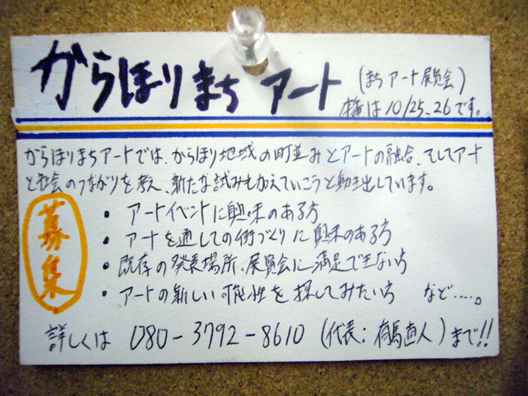 からほりまちアート
(まちアート展覧会)
本番は10/25.26です。
からほりまちアートでは、からほり地域の町並みとアートの融合、そしてアート
と社会のつながりを考え、新たな試みも加えていこうと動き出しています。
募集
・アートイベントに興味のある方
・アートを通しての街づくりに興味のある方
・既存の発表場所、展覧会に満足できない方
・アートの新しい可能性を探してみたい方 など……。
詳しくは 080-3792-8610 (代表:有馬直人)まで!!